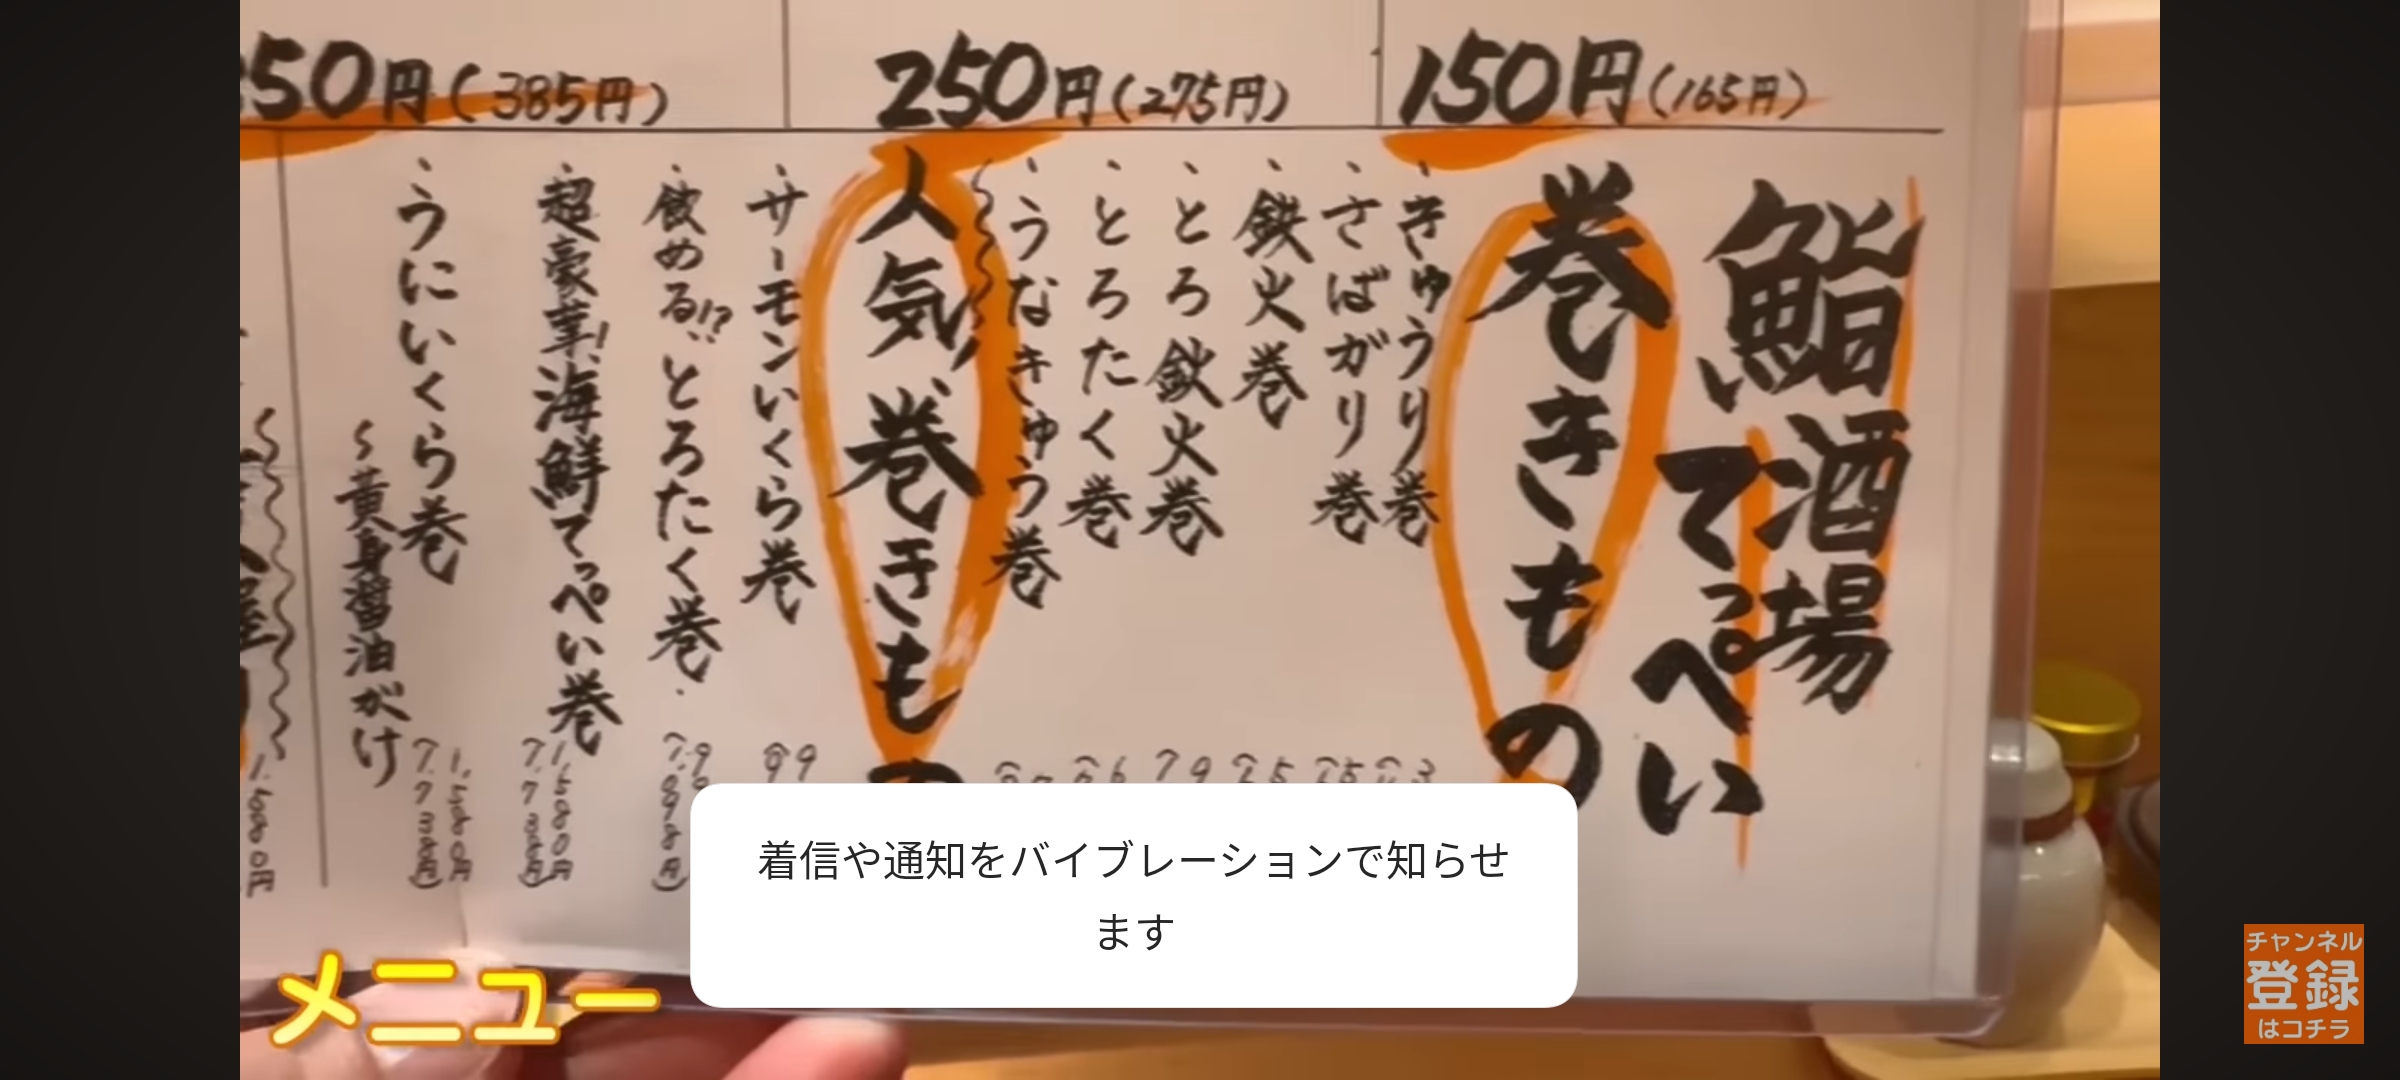 150円(165円)
250円(275円)
50円(385円)
鮨酒場
てっぺい
巻きもの
、きゅうり巻
、さばがり巻
、鉄火巻
、とろ鉄火巻
、とろたく巻
、うなきゅう巻
人気!巻きもの
、サーモンいくら巻
、飲める!?とろたく巻
、超豪華!海鮮てっぺい巻
1,580円
(1,738円)
、うにいくら巻
〜黄身醤油がけ
1,580円
(1,738円)
着信や通知をバイブレーションで知らせ
ます
メニュー
チャンネル
登録
はコチラ